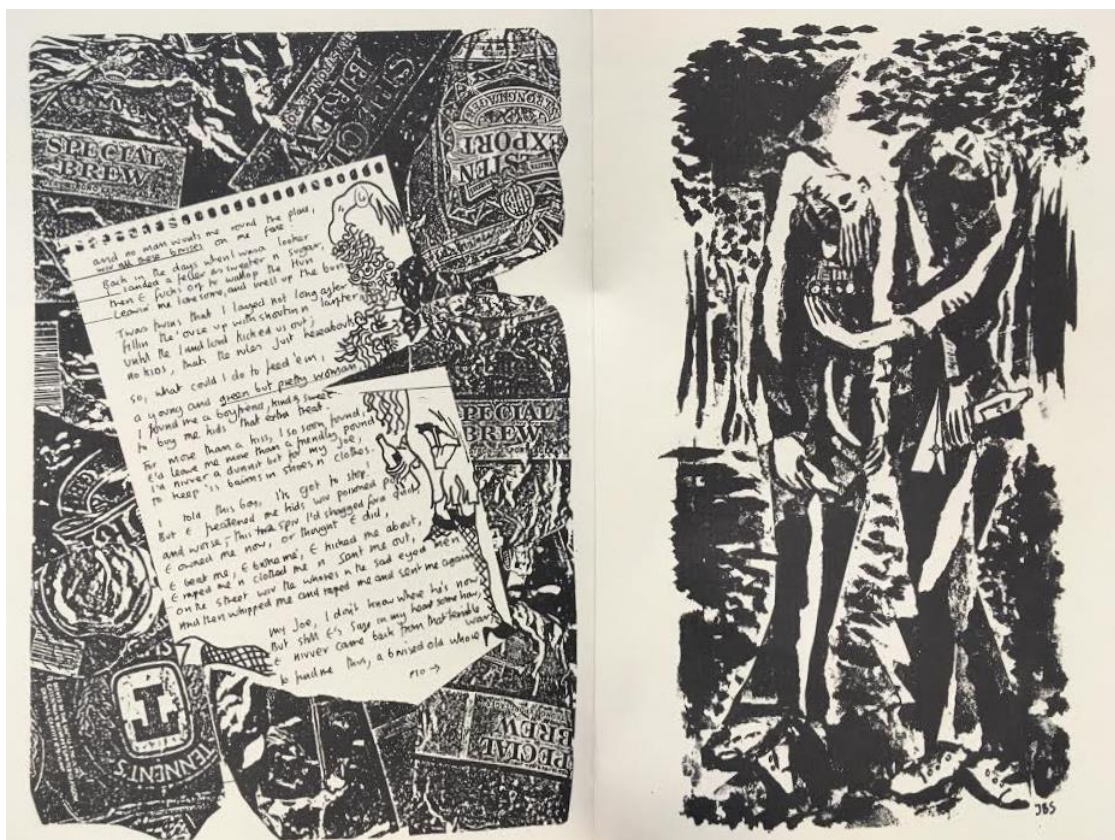 SPECIAL
BREW
SPECIAL
BREW
EXPORT
and no man wants me round the place,
wiv all these bruises on me face!
Back in the days when I was a looker
I landed a feller as sweeter n sugar,
then E fucks off to wallop the Hun
Leavin' me lonesome, and swell up the bun
Twas twins that I layed not long after
fillin the 'ouse up with shoutin n laughter
until the landlord kicked us out;
no kids, thats the rules just hereabouts
So, what could I do to feed 'em,
a young and green but pretty woman,
I found me a boyfriend, kind & sweet
to buy me kids that extra treat.
For more than a kiss, I so soon found,
E'd leave me more than a friendly pound
I'd nivver a dunnit but for my Joe,
to keep 'is bairns in shoes n clothes.
I told this boy, I've got to stop!
But E freatened me kids wiv poisened pop
and worse - this spiv I'd shagged for a quid,
E owned me now, or thought E did,
E beat me, E me, E kicked me about,
E raped me n clothed me n sent me out,
on the street wiv the whores n the sad eyed men
And then whipped me and raped me and sent me again
My Joe, I don't know where he's now
But still E's safe in my heart somehow,
E nivver came back from that terrible war
to find me thus, a bruised old whore
PTO →
SPECIAL
BREW
T
TENNENT'S
SPECIAL
BREW
SPECIAL
BREW
JBS